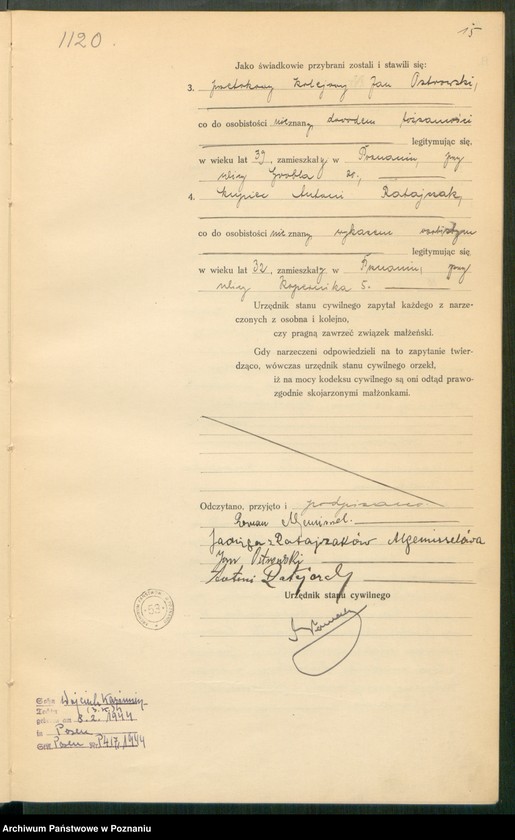 1120.
15
Jako świadkowie przybrani zostali i stawili się:
3. kolejowy Jan Ostrowski,
co do osobistości nieznany, dowodem tożsamości
legitymując się,
w wieku lat 39, zamieszkały w Poznaniu, przy
ulicy Grobla
4. kupiec Antoni Ratajczak,
co do osobistości nieznany, wykazem osobistym
legitymując się,
w wieku lat 32, zamieszkały w Poznaniu, przy
ulicy Kopernika 5.
Urzędnik stanu cywilnego zapytał każdego z narze-
czonych z osobna i kolejno,
czy pragną zawrzeć związek małżeński.
Gdy narzeczeni odpowiedzieli na to zapytanie twier-
dząco, wówczas urzędnik stanu cywilnego orzekł,
iż na mocy kodeksu cywilnego są oni odtąd prawo-
zgodnie skojarzonymi małżonkami.
Odczytano, przyjęto i podpisano
Roman
Jadwiga z Ratajczaków
Jan Ostrowski
Antoni Ratajczak
Urzędnik stanu cywilnego
53
Wojciech Kazimierz
8.2.1944
in Posen
Posen Nr 417/1944
Archiwum Państwowe w Poznaniu